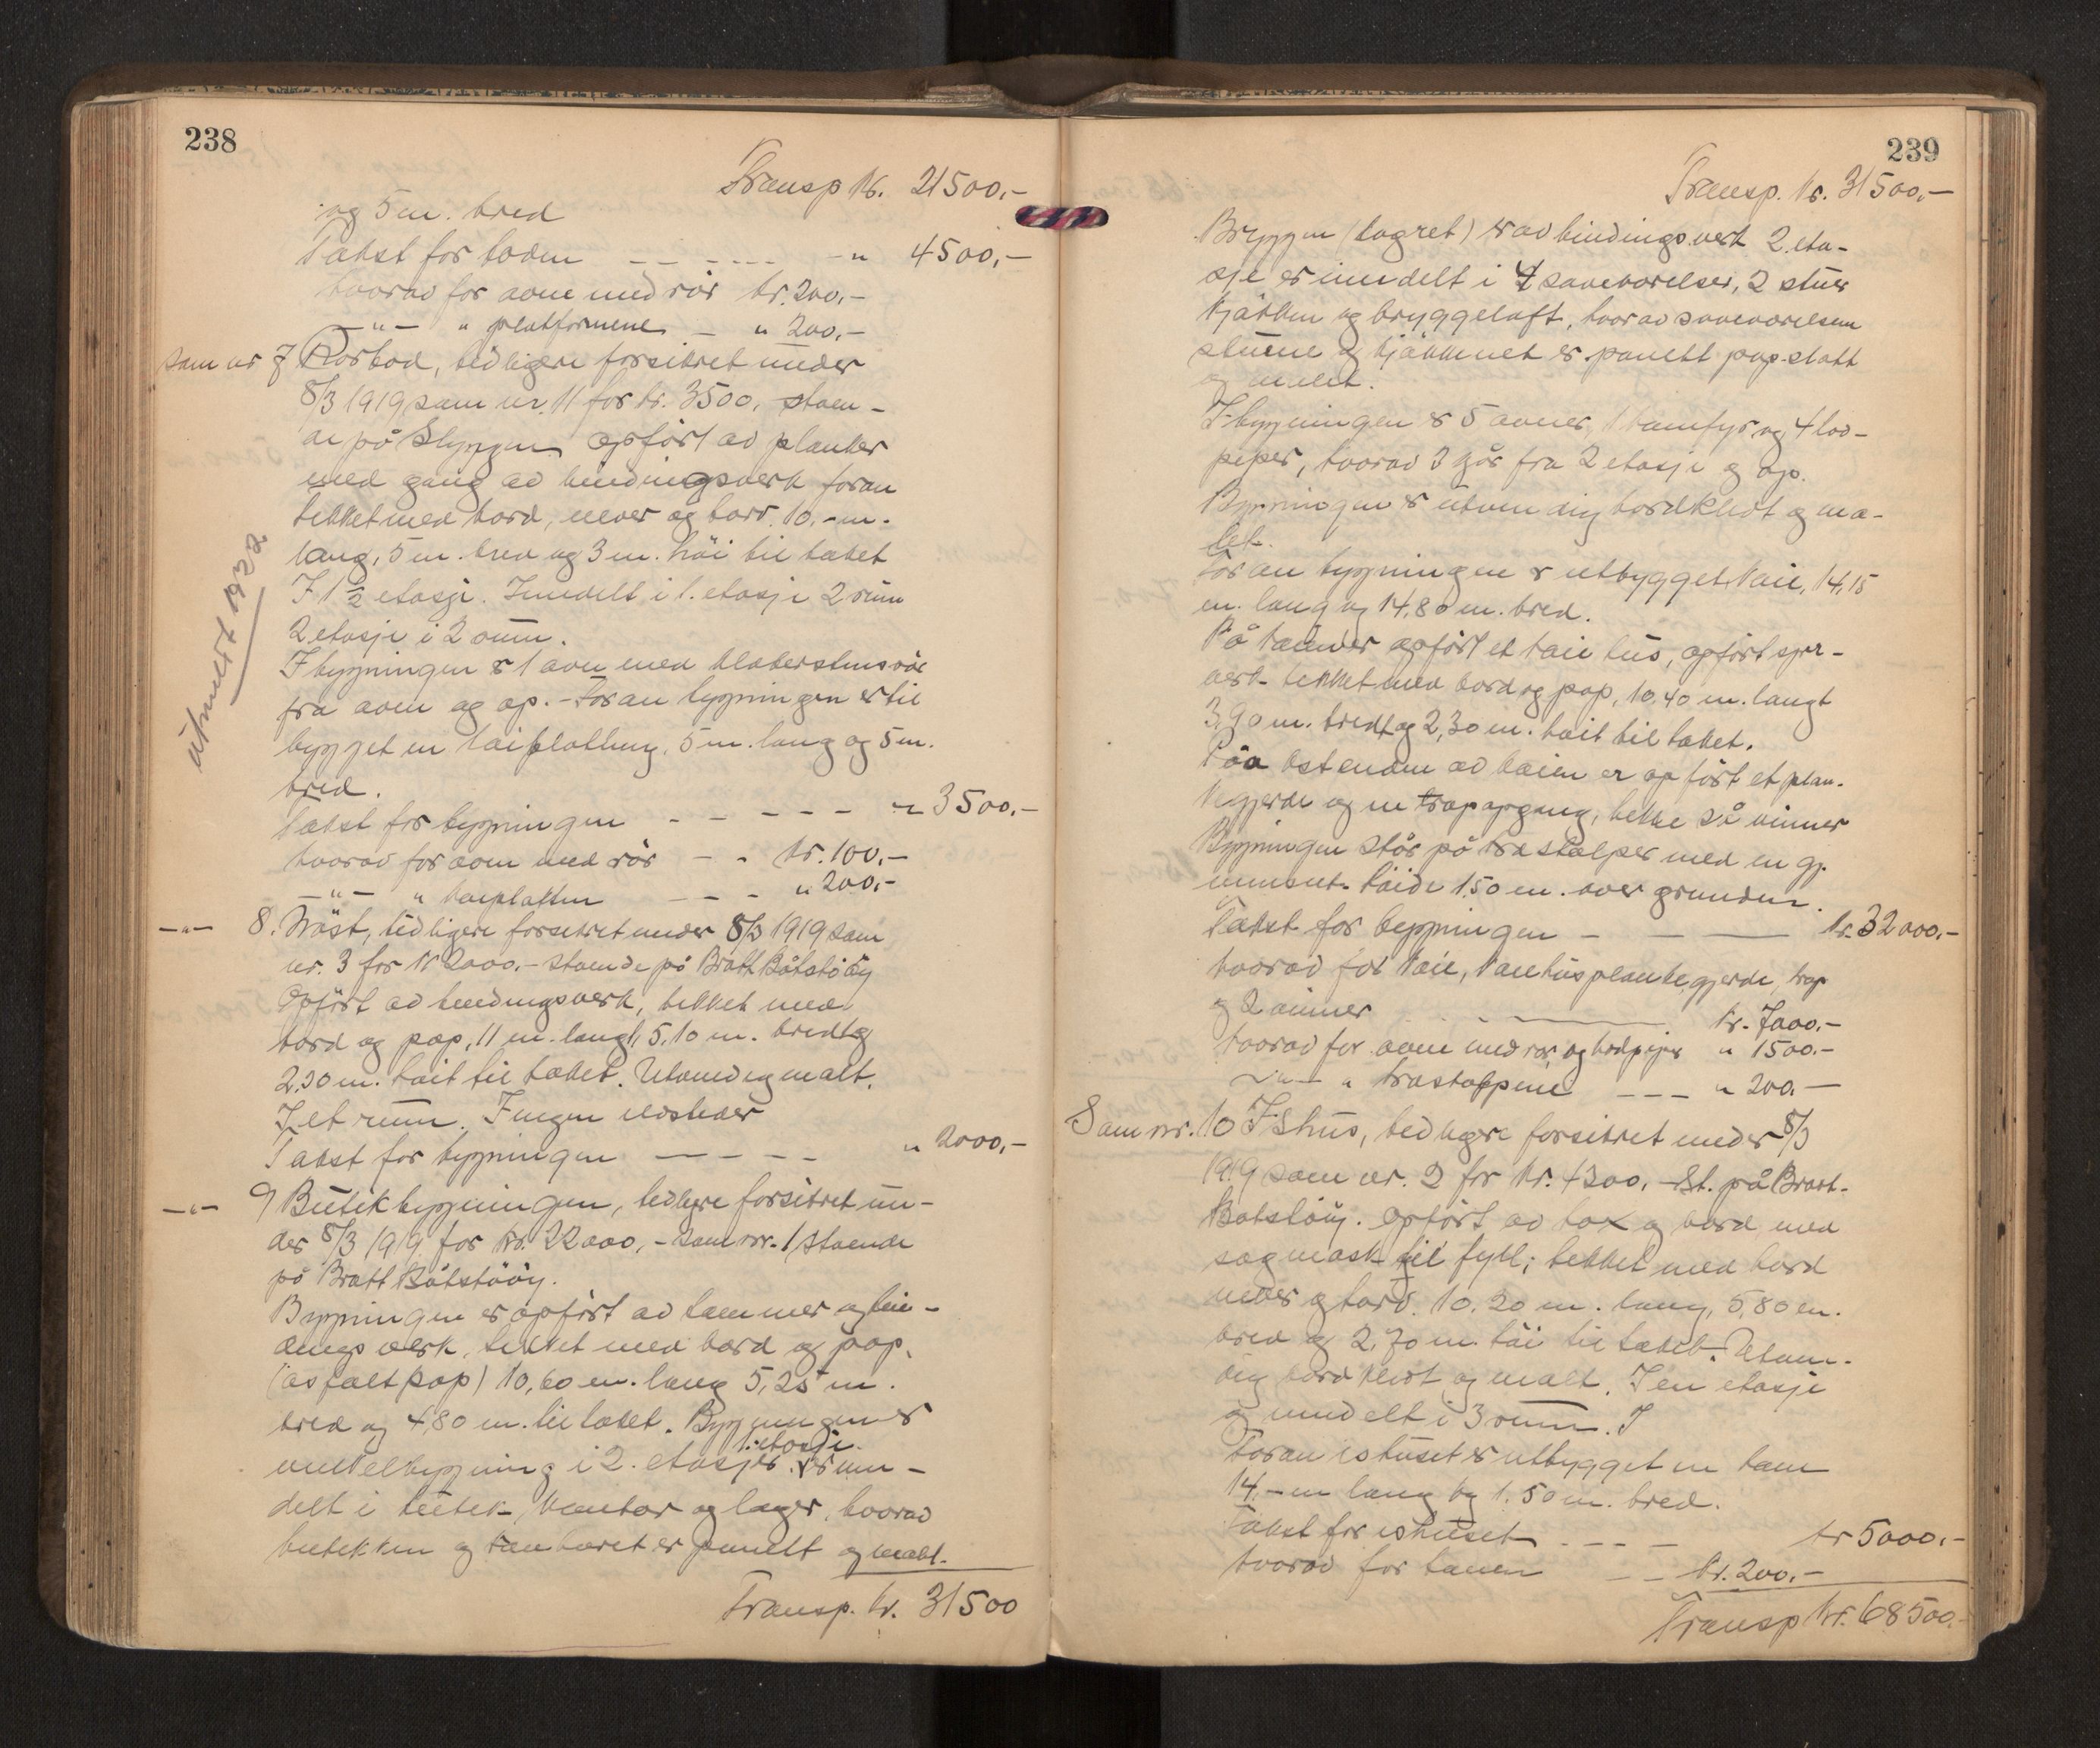 238
Transp kr. 21500,-
og 5 m. bred
Takst for boden - - - - - - " 4500,-
hvorav for ovne med rör kr. 200,-
-"- " platformene - " 200,-
Sam nr 7 Rorbod, tidligere forsikret under
8/3 1919 som nr. 11 for kr. 3500, staen-
de på Skjyggen opfört av planker
med gang av bindingsverk foran
tekket med bord, never og torv. 10,- m.
lang, 5 m. bred og 3 m. höi til taket
I 1 1/2 etasje. Inndelt i 1. etasje 2 rum
2 etasje i 2 rum.
utmeldt 1922
I bygningen er 1 ovn med kleberstensrör
fra ovn og op. - Foran bygningen er til
bygget en kaiplatting, 5 m. lang og 5 m.
bred.
Takst for bygningen - - - - - " 3500,-
hvorav for ovn med rör - - kr. 100,-
-"- " kaiplatten - - - " 200,-
-"- 8. Naust, tidligere forsikret under 8/3 1919 som
nr. 3 for kr 2000,- staende på Bratt Båtstööy
Opfört av bindingsverk, tekket med
bord og pap, 11 m. langt, 5,10 m. bredt og
2,30 m. höit til taket. Utvendig malt.
I et rum. Ingen ildsteder
Takst for bygningen - - - - " 2000,-
-"- 9 Butikbygningen, tidligere forsikret un-
der 8/3 1919 for kr. 22000,- som nr. 1 staende
på Bratt Båtstööy.
Bygningen er opfört av tømmer og bin-
dings verk, tekket med bord og pap,
(asfalt pap) 10,60 m. lang 5,25 m.
bred og 4,80 m. til taket. Bygningen er
vinkelbygning i 2. etasjer. 1. etasje er inn-
delt i butik, kontor og lager, hvorav
butikken og kontoret er panelt og malt.
Transp. kr. 31500
239
Transp. kr. 31500,-
Bryggen (lagret) er av bindingsverk 2. eta-
sje er inndelt i 4 soveværelser, 2 stuer
kjökken og bryggeloft, hvorav soveværelsene
stuene og kjökkenet er panelt pap-slått
og malt.
I bygningen er 5 ovner, 1 komfyr og 4 lod-
piper, hvorav 3 går fra 2 etasje og op.
Bygningen er utvendig bordklædt og ma-
let.
Foran bygningen er utbygget kaie, 14,15
m. lang og 14,80 m. bred.
På kaien er opfört et kaie hus, opfört sper-
verk tekket med bord og pap, 10,40 m. langt
3,90 m. bredt og 2,30 m. höit til taket.
Påa östenden av kaien er op fört et plan-
kegjerde og en trapopgang, bekke så vinner
Bygningen står på træstolper med en gj.
nemsnit. höide 1.50 m. over grunden.
Takst for bygningen - - - kr. 32000,-
hvorav for kaie, kaiehus plankegjerde, trap
og 2 vinner kr. 7000,-
hvorav for ovne med rör og lodpiper " 1500,-
-"- " træstolpene - - - " 200,-
Sam nr. 10 Ishus, tidligere forsikret under 8/3
1919 som nr. 2 for kr. 4300,- St. på Bratt-
Båtstööy. Opfört av lax og bord med
sagmask til fyll; tekket med bord
never og torv. 10.20 m. lang, 5,80 m.
bred og 2,70 m. höi til taket. Utven-
dig bord klædt og malt. I en etasje
og inndelt i 3 rum. I
Foran ishuset er utbygget en kaie
14,- m lang og 1.50 m. bred.
Takst for ishuset - - - - kr 5000,-
hvorav for kaien - - kr. 200,-
Transp kr. 68500,-